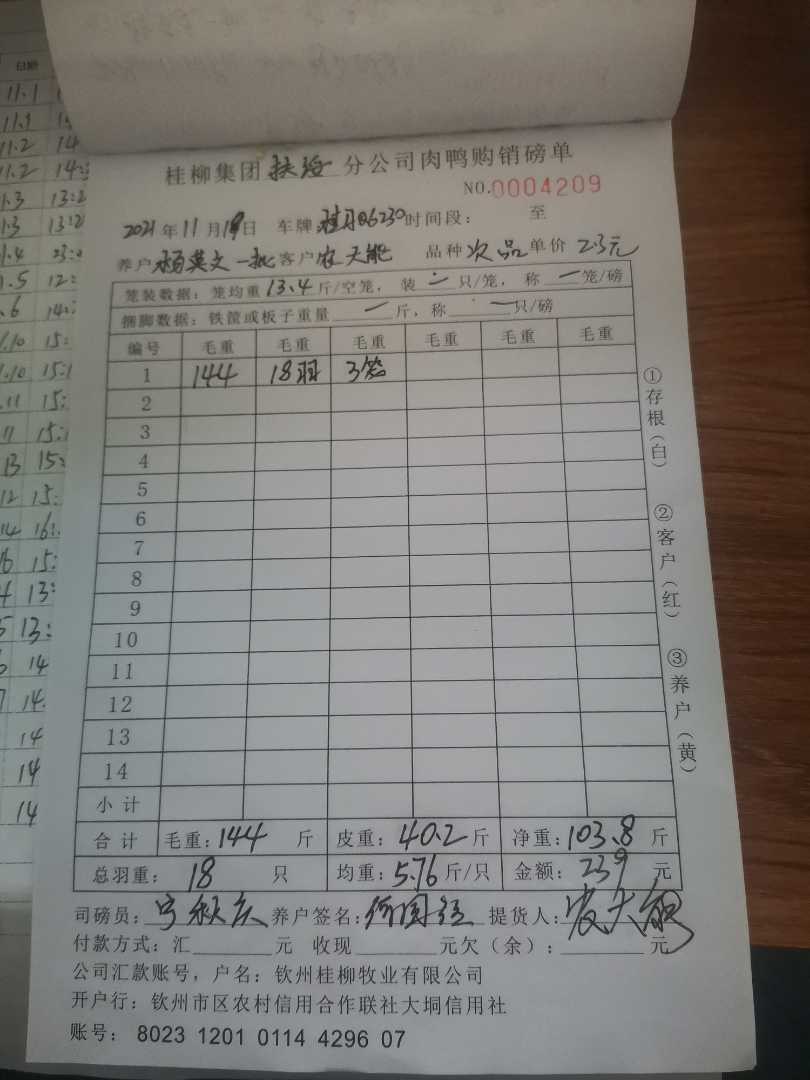 桂柳集团扶绥分公司肉鸭购销磅单
NO.0004209
2021年11月19日 车牌 桂J06230 时间段： 至
养户 杨英文一批 客户 农大能 品种 次品 单价 2.3元
笼装数据：笼均重13.4斤/空笼，装 一 只/笼，称 一 笼/磅
捆脚数据：铁筐或板子重量 一 斤，称 一 只/磅
编号 毛重 毛重 毛重 毛重 毛重 毛重
1 144 18羽 3笼
2
3
4
5
6
7
8
9
10
11
12
13
14
小计
合计 毛重：144 斤 皮重：40.2斤 净重：103.8斤
总羽重： 18 只 均重：5.76斤/只 金额：239 元
司磅员： 养户签名： 提货人：农大能
付款方式：汇 元 收现 元欠（余）： 元
公司汇款账号，户名：钦州桂柳牧业有限公司
开户行：钦州市区农村信用合作联社大垌信用社
账号： 8023 1201 0114 4296 07
①存根（白）
②客户（红）
③养户（黄）
日期
11.1
11.1
11.2 14
11.2 14:
.3 13:2
.3 13:2
.4 23:
.5 12:
.6 14:
.10 15:
.10 15:1
.11 15:
11 15:
13 15:
12 15:
14 16:
16 15:
4 13:
5 13:
14
14.
14
14
14